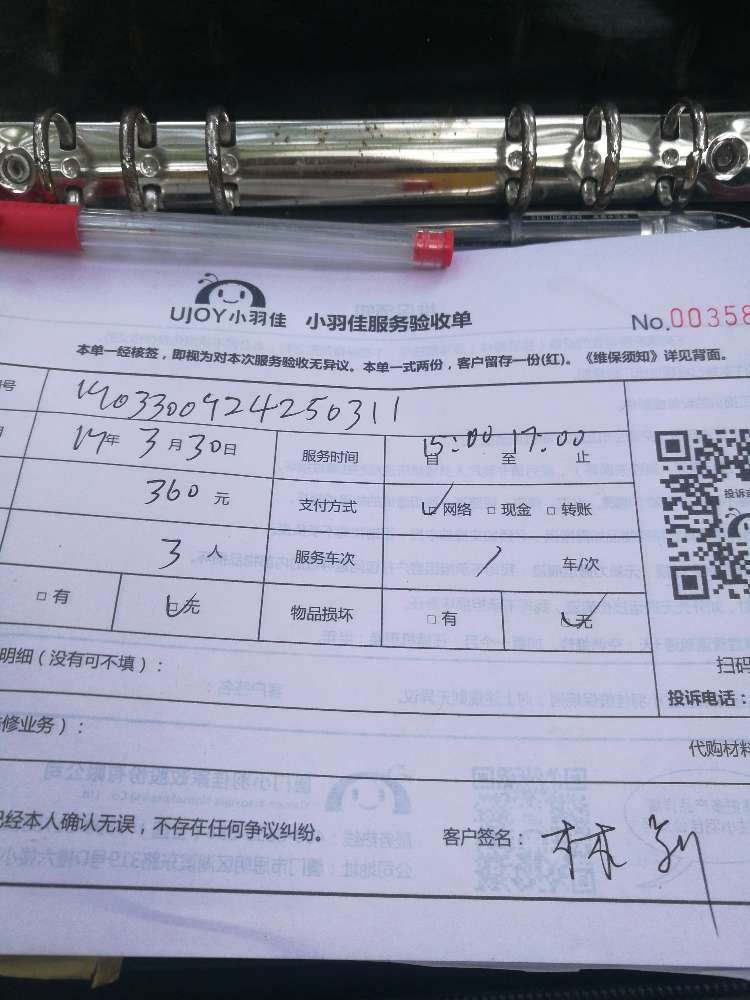 UJOY小羽佳 小羽佳服务验收单
No.00358
本单一经核签，即视为对本次服务验收无异议。本单一式两份，客户留存一份(红)。《维保须知》详见背面。
号 1703300924250311
17年3月30日 服务时间 15:00 自 至 17:00 止
360元 支付方式 ☑网络 □现金 □转账
3人 服务车次 / 车/次
□有 ☑无 物品损坏 □有 ☑无
扫码
明细（没有可不填）：
投诉电话：
修业务）：
代购材料
已经本人确认无误，不存在任何争议纠纷。
客户签名： 林